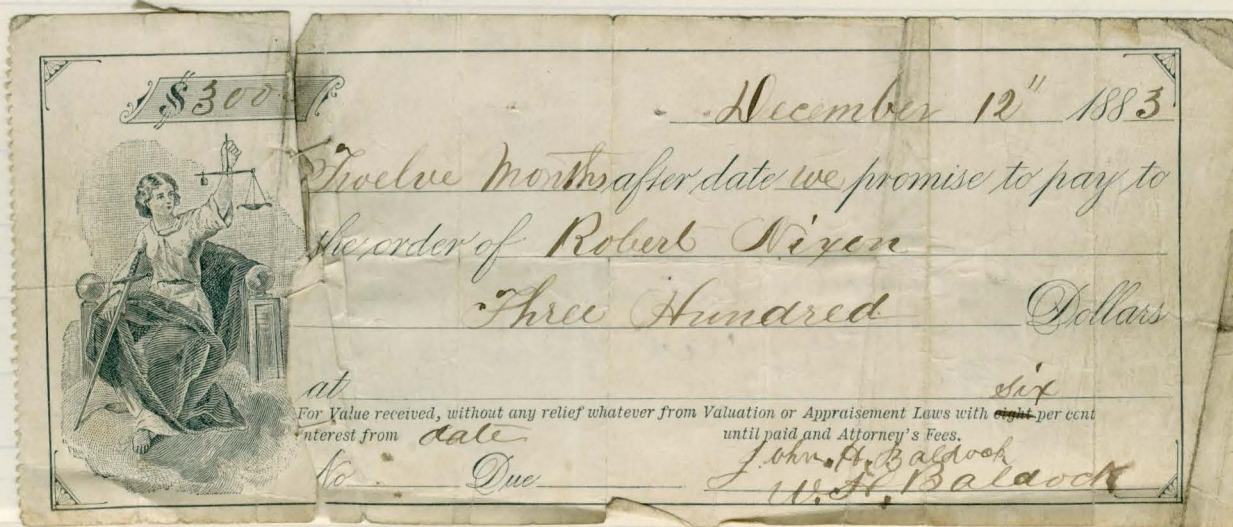 $300
December 12" 1883
Twelve Months after date we promise to pay to
the order of Robert Nixen
Three Hundred Dollars
at
six
For Value received, without any relief whatever from Valuation or Appraisement Laws with eight per cent
nterest from date until paid and Attorney's Fees.
No Due
John H. Baldock
W. H. Baldock